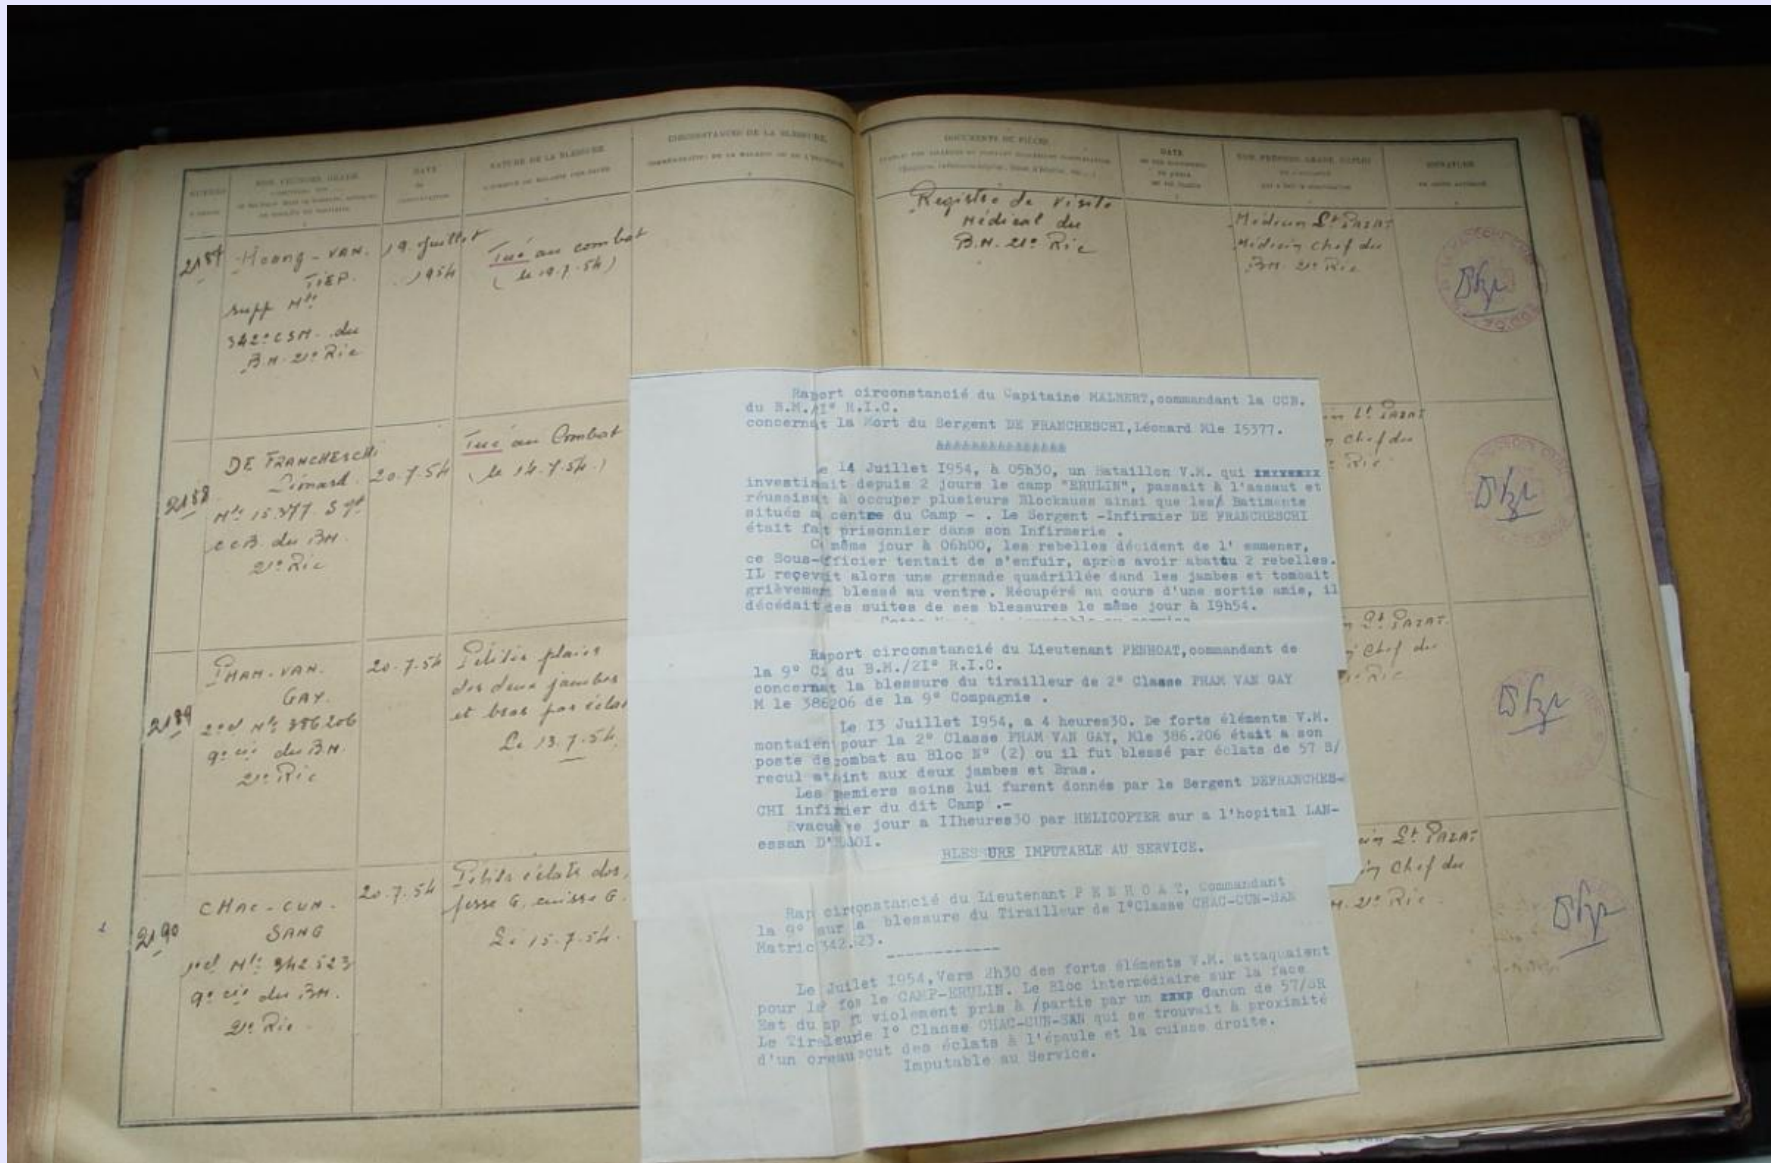 NUMÉRO
NOM, PRÉNOMS, GRADE
DATE
NATURE DE LA BLESSURE
CIRCONSTANCES DE LA BLESSURE
DOCUMENTS OU PIÈCES
DATE
SIGNATURE
2187
Hoang-VAN.
TIEP.
supp Mle
342e CSM. du
B.M. 21e Ric
19. Juillet
1954
Tué au combat
(le 19.7.54)
Registre de visite
Médical du
B.M. 21e Ric
Médecin Lt PAZAT
Médecin Chef du
BM. 21e Ric
2188
DE FRANCHESCHI
Léonard.
Mle 15.377 Sgt
CCB. du BM.
21e Ric
20.7.54
Tué au Combat
(le 14.7.54.)
Lt PAZAT
Chef du
Ric
2189
PHAM-VAN.
GAY.
2e cl Mle 386206
9e cie du BM.
21e Ric
20.7.54
Petites plaies
des deux jambes
et bras par éclat
Le 13.7.54.
Lt PAZAT.
Chef du
Ric
2190
CHAC-CUN-
SANG
1e cl Mle 342.523
9e cie du BM.
21e Ric
20.7.54
Petits éclats des
fesse G, cuisse G.
Le 15.7.54.
Lt PAZAT
Chef du
M. 21e Ric
Raport circonstancié du Capitaine MALBERT,commandant la CCB.
du B.M./I° R.I.C.
concernat la Mort du Sergent DE FRANCHESCHI,Léonard Mle I5377.
e 14 Juillet I954, à 05h30, un Bataillon V.M. qui
investissait depuis 2 jours le camp "ERULIN", passait à l'assaut et
réussisat à occuper plusieurs Blockauss ainsi que les/ Batiments
situés a centre du Camp - . Le Sergent -Infirmier DE FRANCHESCHI
était fat prisonnier dans son Infirmerie .
C même jour à 06h00, les rebelles décident de l' emmener,
ce Sous-fficier tentait de s'enfuir, après avoir abattu 2 rebelles.
IL reçevit alors une grenade quadrillée dand les jambes et tombait
grièvemen blessé au ventre. Récupéré au cours d'une sortie amie, il
décédait des suites de ses blessures le même jour à I9h54.
Raport circonstancié du Lieutenant PENHOAT,commandant de
la 9° Ci du B.M./2I° R.I.C.
concernat la blessure du tirailleur de 2° Classe PHAM VAN GAY
M le 386206 de la 9° Compagnie .
Le I3 Juillet I954, a 4 heures30. De forts éléments V.M.
montaien pour la 2° Classe PHAM VAN GAY, Mle 386.206 était a son
poste de combat au Bloc N° (2) ou il fut blessé par éclats de 57 S/
recul atint aux deux jambes et Bras.
Les pemiers soins lui furent donnés par le Sergent DEFRANCHES-
CHI infimier du dit Camp .-
Evacué e jour a IIheures30 par HELICOPTER sur a l'hopital LAN-
essan D'HANOI.
BLESSURE IMPUTABLE AU SERVICE.
Rap circonstancié du Lieutenant P E N H O A T, Commandant
la 9° sur a blessure du Tirailleur de I°Classe CHAC-CUN-SAN
Matric 342.523.
Le Juilet I954,Vers 2h30 des forts éléments V.M. attaquaient
pour la fos le CAMP-ERULIN. Le Bloc intermédiaire sur la face
Est du mp ft violement pris à /partie par un Canon de 57/SR
Le Tiraleurde I° Classe CHAC-CUN-SAN qui se trouvait à proximité
d'un creau eçut des éclats à l'épaule et la cuisse droite.
Imputable au Service.